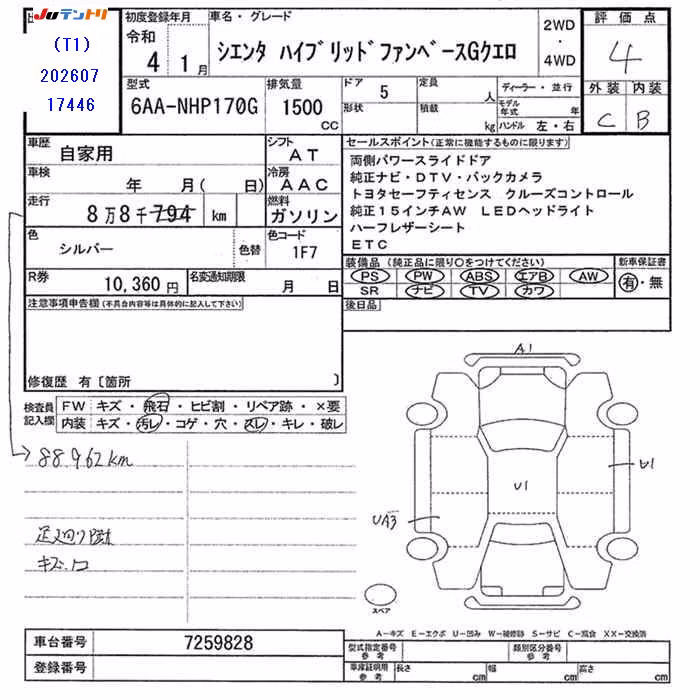 Juテントリ
(T1)
202607
17446
初度登録年月
令和
4 1月
車名・グレード
シエンタ ハイブリッドファンベースGクエロ
2WD
・
4WD
評価点
4
外装 内装
C B
型式
6AA-NHP170G
排気量
1500
CC
ドア 5
形状
定員 人
積載 kg
ディーラー・並行
モデル年式 年
ハンドル 左・右
車歴
自家用
シフト
AT
車検
年 月( 日)
冷房
AAC
走行
8万8千794 km
燃料
ガソリン
色
シルバー
色替
色コード
1F7
R券
10,360円
名変通知期限
月 日
セールスポイント(正常に機能するものに限ります)
両側パワースライドドア
純正ナビ・DTV・バックカメラ
トヨタセーフティセンス クルーズコントロール
純正15インチAW LEDヘッドライト
ハーフレザーシート
ETC
装備品(純正品に限り○をつけてください)
PS PW ABS エアB AW
SR ナビ TV カワ
新車保証書
有・無
後日品
注意事項申告欄(不具合内容等は具体的に記入して下さい)
修復歴 有〔箇所 〕
検査員
記入欄
FW キズ・飛石・ヒビ割・リペア跡・×要
内装 キズ・汚レ・コゲ・穴・スレ・キレ・破レ
88962km
足廻り錆
キズ・凹
A1
U1
U1
UA3
スペア
A-キズ E-エクボ U-凹み W-補修跡 S-サビ C-腐食 XX-交換済
車台番号 7259828
登録番号
型式指定番号
参考
類別区分番号
参考
車庫証明用
参考
長さ cm 幅 cm 高さ cm